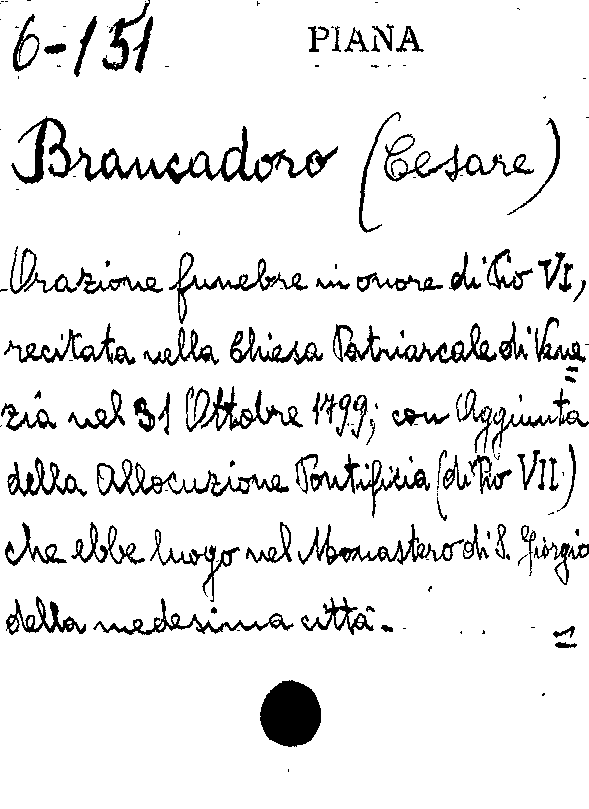 6-151 PIANA
Brancadoro (Cesare)
Orazione funebre in onore di Pio VI,
recitata nella Chiesa Patriarcale di Vene
=
zia nel 31 Ottobre 1799; con Aggiunta
della Allocuzione Pontificia (di Pio VII)
che ebbe luogo nel Monastero di S. Giorgio
della medesima città.